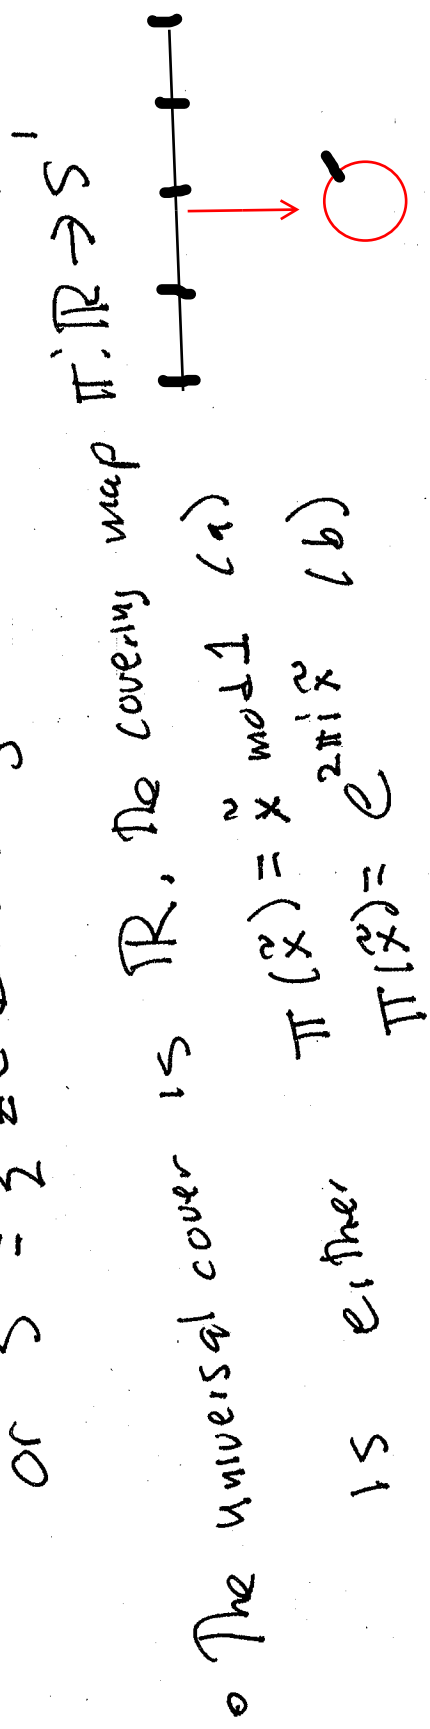 or S = { z ∈
• The universal cover is ℝ. The covering map π: ℝ → S¹
is either π(x̃) = x̃ mod 1 (a)
π(x̃) = e^{2πi x̃} (b)